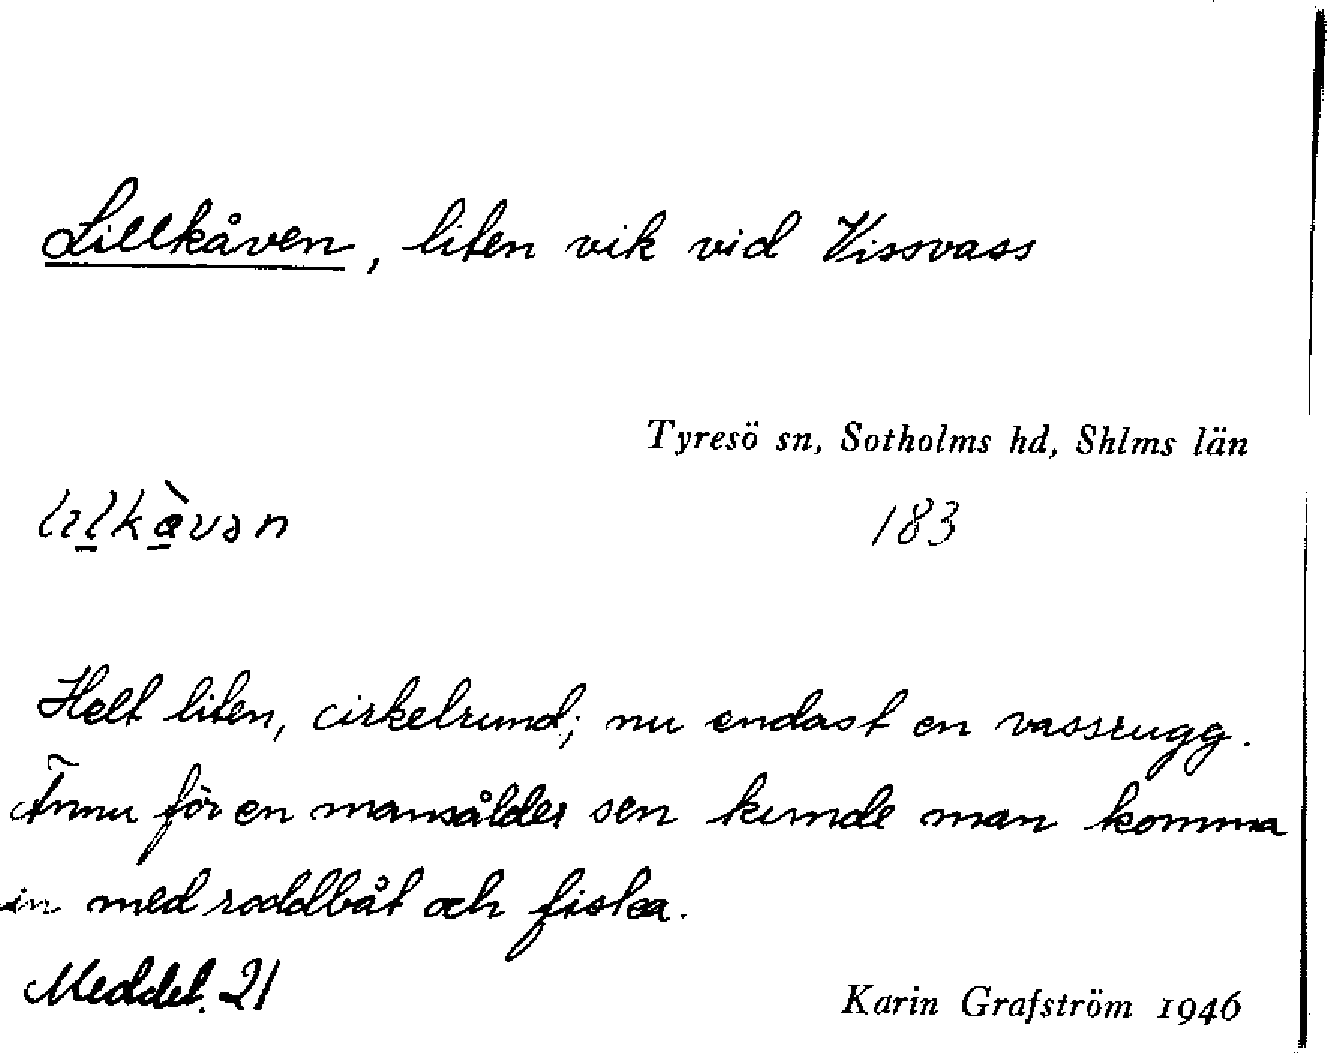 Lillkåven, liten vik vid Vissvass
Tyresö sn, Sotholms hd, Shlms län
183
Helt liten, cirkelrund; nu endast en vassrugg.
Ännu för en mansålder sen kunde man komma
in med roddbåt och fiska.
Meddel. 21
Karin Grafström 1946